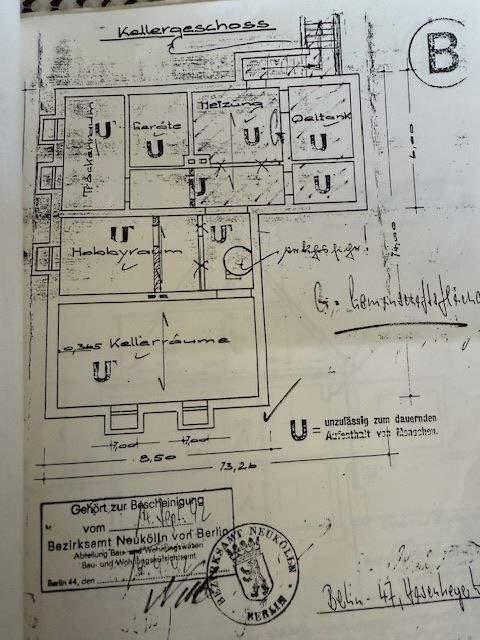 Kellergeschoss
B
Trockenraum
U
Geräte
U
Heizung
U
G
Oeltank
U
U
U
6,00
Hobbyraum
U
U
G =
0,365 Kellerräume
U
U = unzulässig zum dauernden
Aufenthalt von Menschen.
1,00
1,00
8,50
13,26
Gehört zur Bescheinigung
vom
Bezirksamt Neukölln von Berlin
Abteilung Bau- und Wohnungswesen
Bau- und Wohnungsaufsichtsamt
Berlin 44, den
BEZIRKSAMT NEUKÖLLN
BERLIN
Berlin-47,